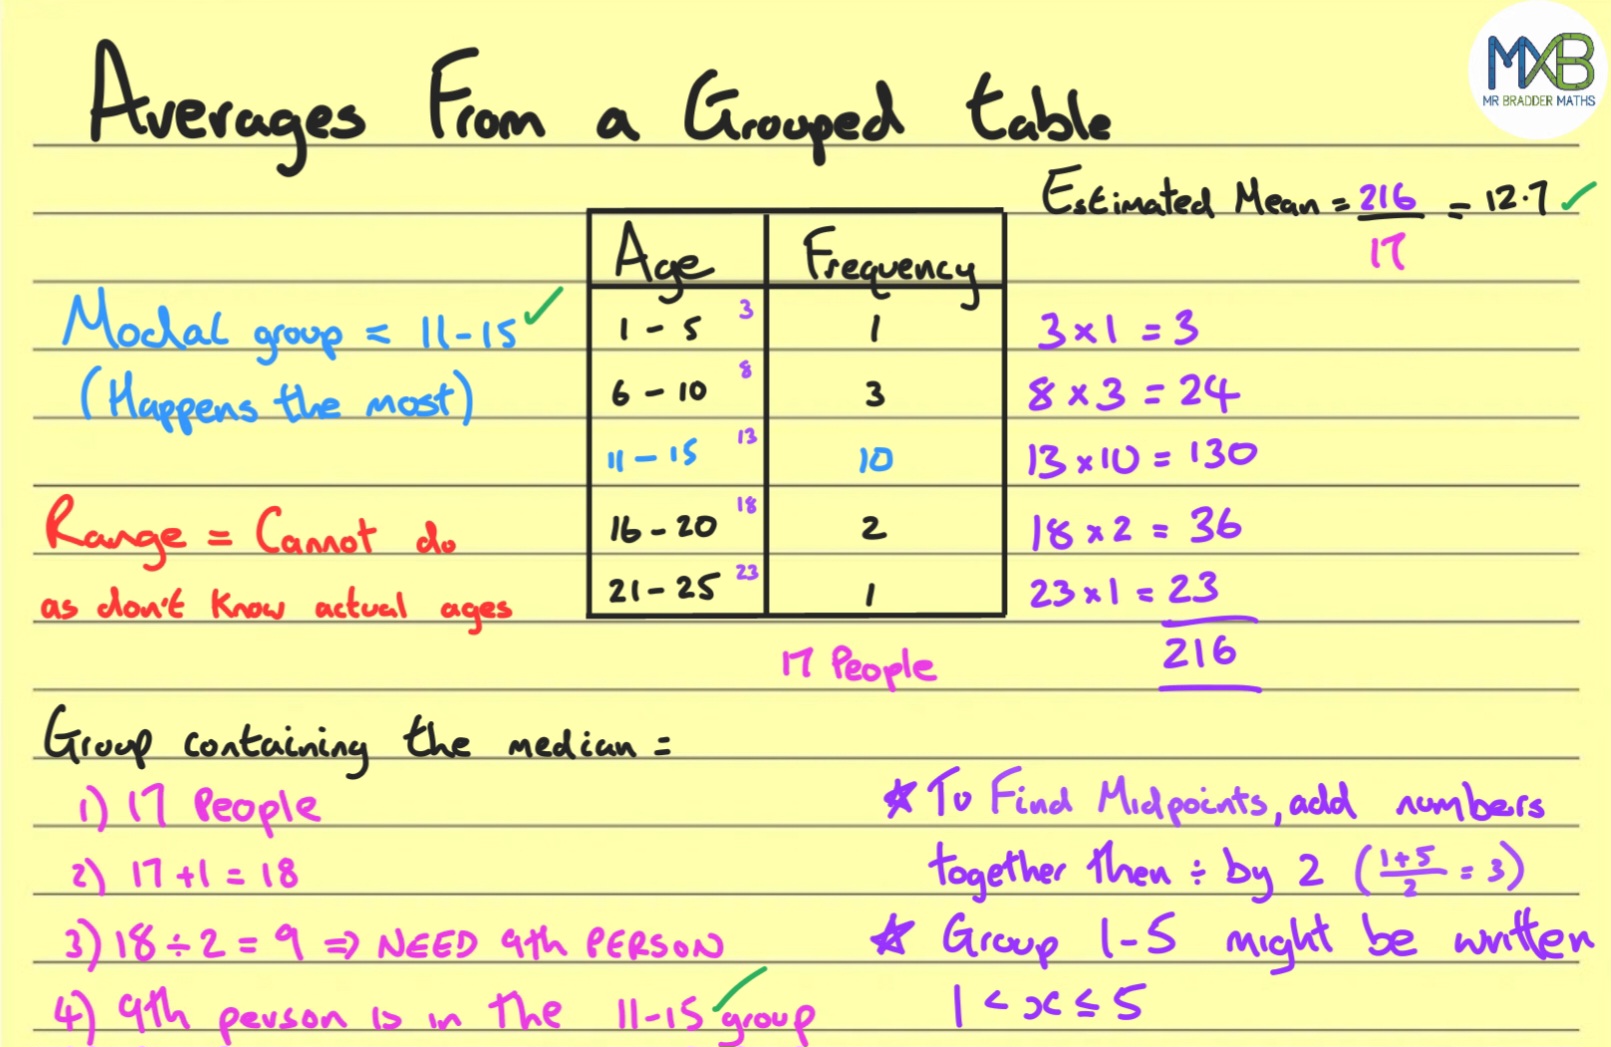 Averages From a Grouped table
MXB
MR BRADDER MATHS
Estimated Mean = 216/17 = 12.7 ✓
Modal group = 11-15 ✓
(Happens the most)
Range = Cannot do
as don't know actual ages
Age Frequency
1 - 5 3 1 3 x 1 = 3
6 - 10 8 3 8 x 3 = 24
11 - 15 13 10 13 x 10 = 130
16 - 20 18 2 18 x 2 = 36
21 - 25 23 1 23 x 1 = 23
17 People 216
Group containing the median =
1) 17 People
2) 17 + 1 = 18
3) 18 ÷ 2 = 9 => NEED 9th PERSON
4) 9th person is in the 11-15 ✓ group
☆ To Find Midpoints, add numbers
together then ÷ by 2 (1+5/2 = 3)
☆ Group 1-5 might be written
1 < x ≤ 5